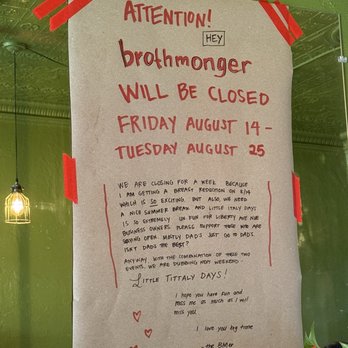 ATTENTION!
HEY
brothmonger
WILL BE CLOSED
FRIDAY AUGUST 14 -
TUESDAY AUGUST 25
WE ARE CLOSING FOR A WEEK BECAUSE
I AM GETTING A BREAST REDUCTION ON 8/14
WHICH IS SO EXCITING. BUT ALSO, WE NEED
A NICE SUMMER BREAK AND LITTLE ITALY DAYS
IS SO EXTREMELY UN FUN FOR LIBERTY AVE
BUSINESS OWNERS. PLEASE SUPPORT THOSE WHO ARE
OPEN. MOSTLY DAD'S JUST GO TO DADS.
ISN'T DADS THE BEST?
ANYWAY, WITH THE COMBINATION OF THESE TWO
EVENTS, WE ARE DUBBING NEXT WEEKEND -
LITTLE TITTALY DAYS!
I hope you have fun and
miss me as much as I will
miss you!
I love you big time
- the BMer